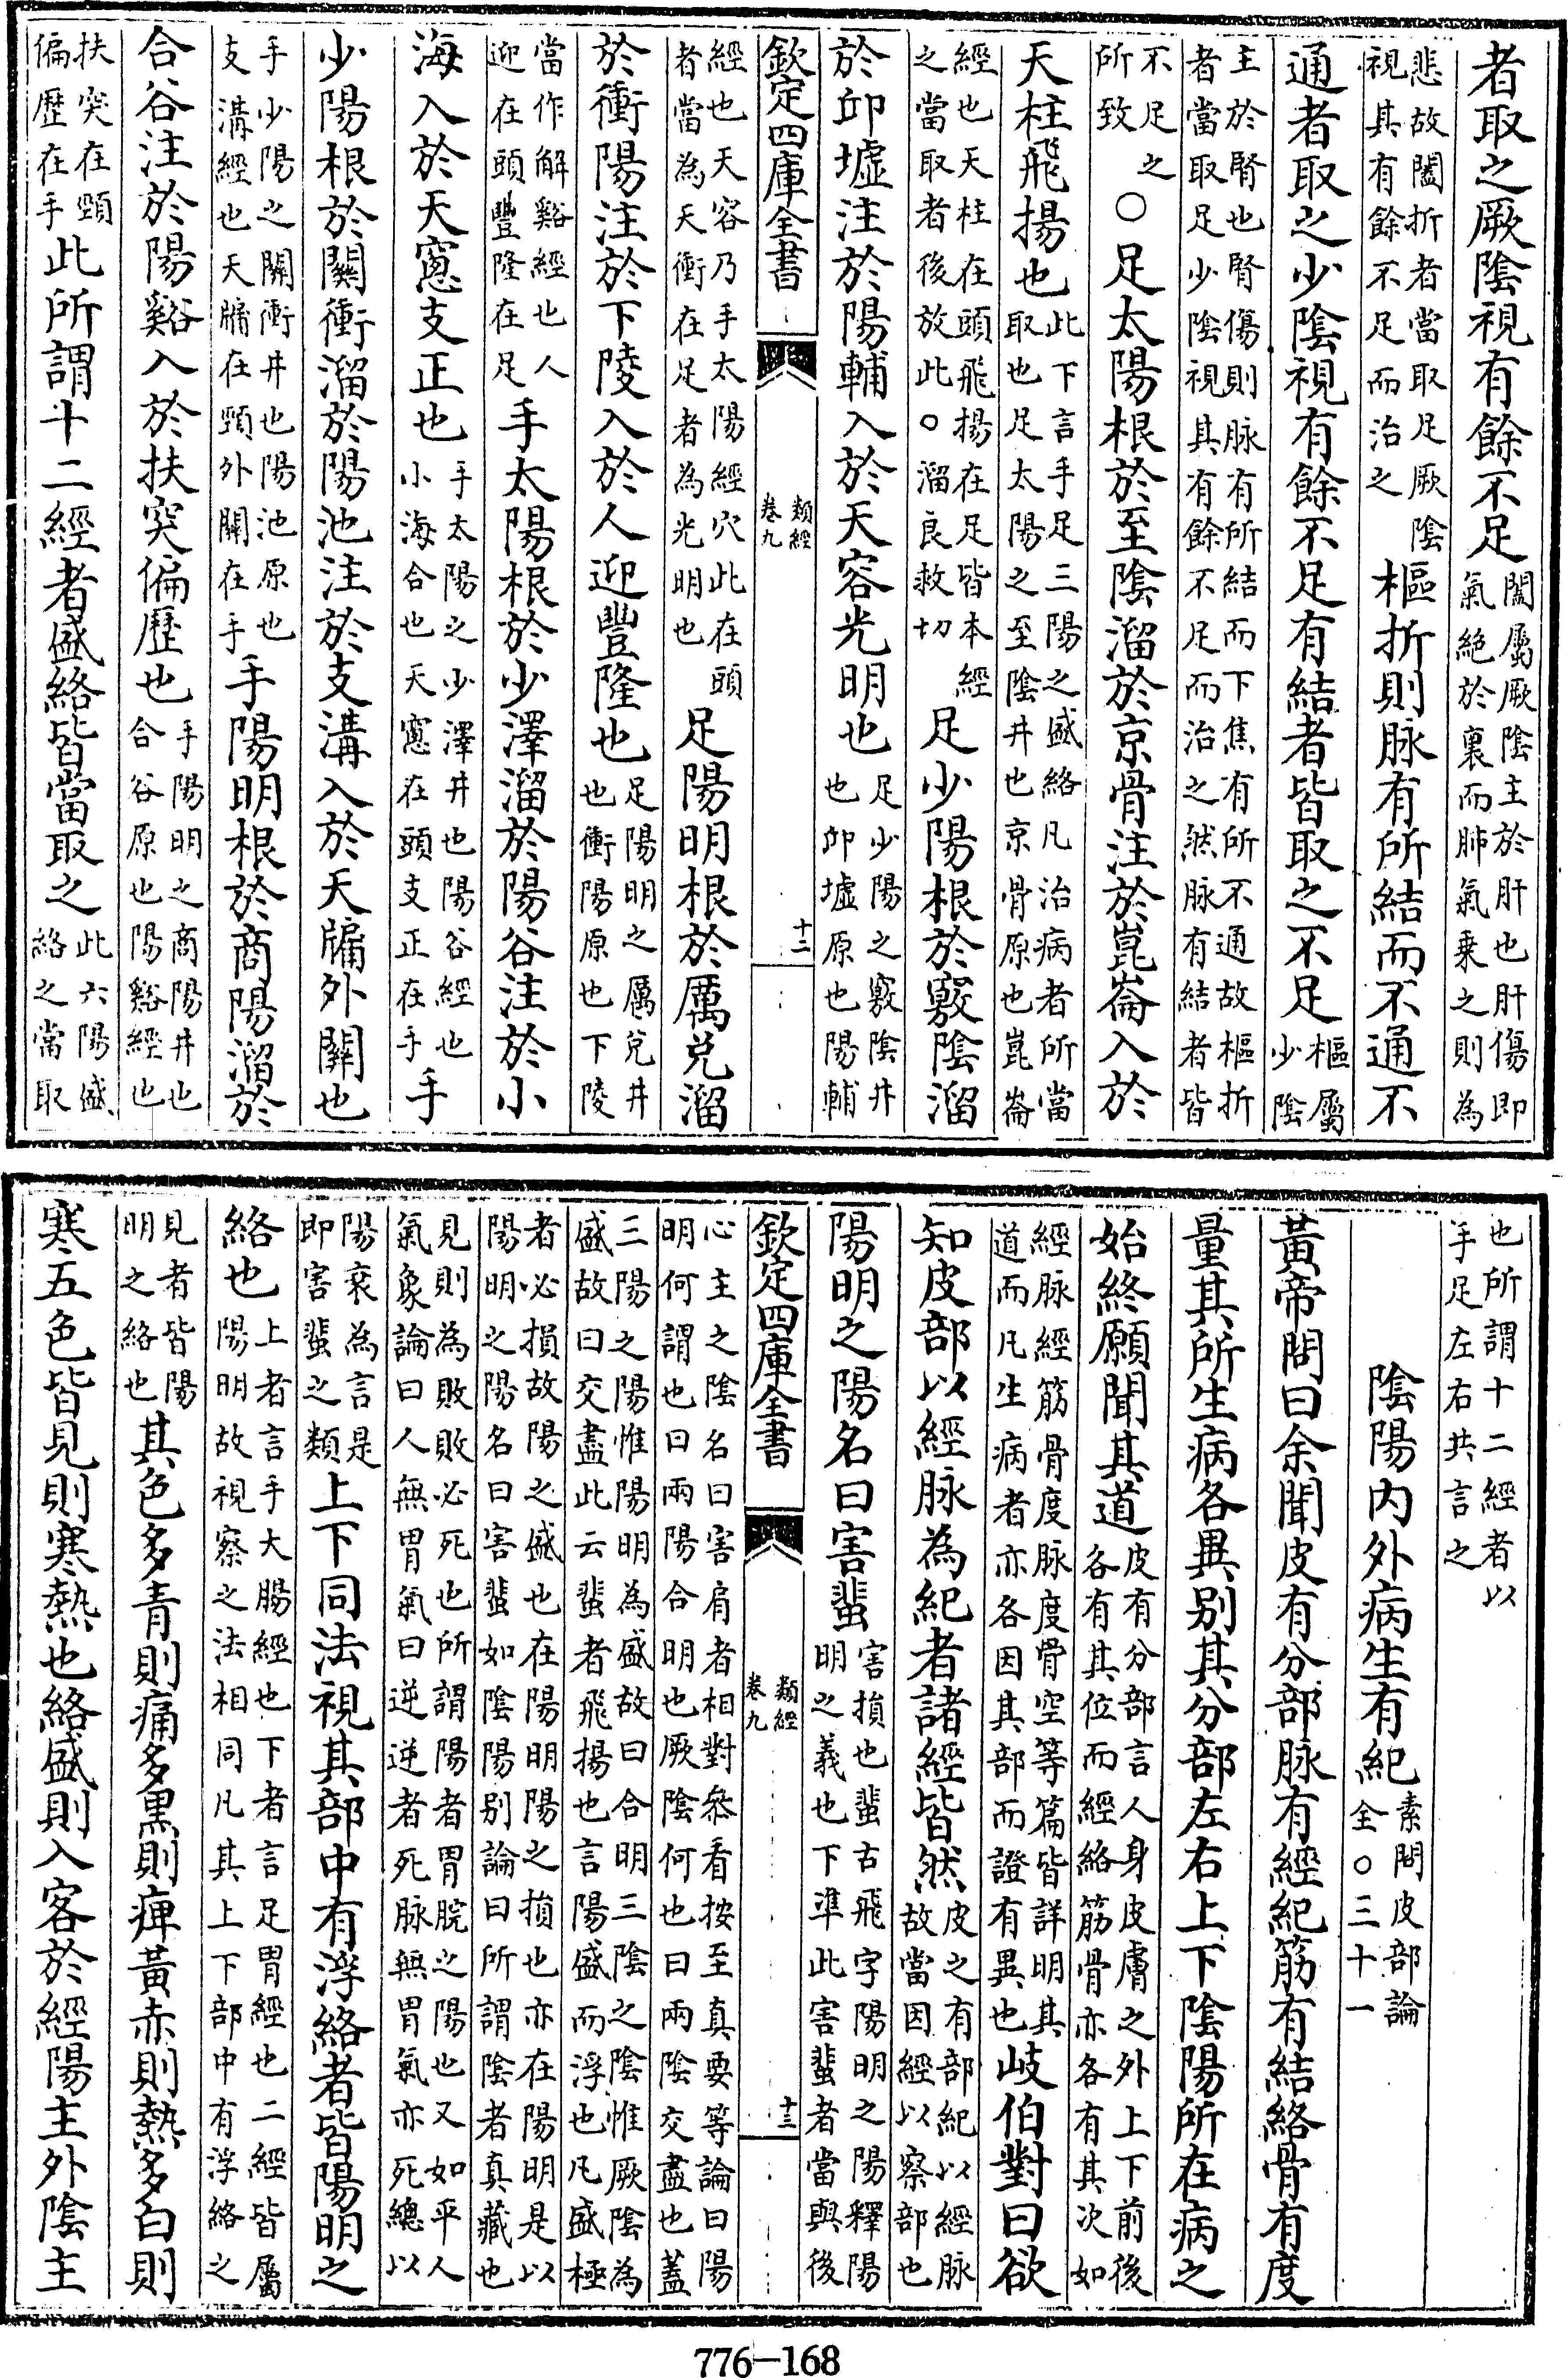 者取之厥陰視有餘不足闔屬厥陰主於肝也肝傷即
氣絶於裏而肺氣乗之則為
悲故闔折者當取足厥陰
視其有餘不足而治之樞折則脉有所結而不通不
通者取之少陰視有餘不足有結者皆取之不足樞屬
少陰
主於腎也腎傷則脉有所結而下焦有所不通故樞折
者當取足少陰視其有餘不足而治之然脉有結者皆
不足之
所致○足太陽根於至陰溜於京骨注於崑崙入於
天柱飛揚也此下言手足三陽之盛絡凡治病者所當
取也足太陽之至陰井也京骨原也崑崙
經也天柱在頭飛揚在足皆本經
之當取者後放此○溜良救切足少陽根於竅陰溜
於卭墟注於陽輔入於天容光明也足少陽之竅陰井
也卭墟原也陽輔
欽定四庫全書
類經
卷九
十二
經也天容乃手太陽經穴此在頭
者當為天衝在足者為光明也足陽明根於厲兌溜
於衝陽注於下陵入於人迎豐隆也足陽明之厲兌井
也衝陽原也下陵
當作解谿經也人
迎在頭豐隆在足手太陽根於少澤溜於陽谷注於小
海入於天窻支正也手太陽之少澤井也陽谷經也
小海合也天窻在頭支正在手手
少陽根於關衝溜於陽池注於支溝入於天牖外關也
手少陽之關衝井也陽池原也
支溝經也天牖在頸外關在手手陽明根於商陽溜於
合谷注於陽谿入於扶突偏歷也手陽明之商陽井也
合谷原也陽谿經也
扶突在頸
偏歷在手此所謂十二經者盛絡皆當取之此六陽盛
絡之當取
也所謂十二經者以
手足左右共言之
陰陽内外病生有紀素問皮部論
全○三十一
黃帝問曰余聞皮有分部脉有經紀筋有結絡骨有度
量其所生病各異别其分部左右上下陰陽所在病之
始終願聞其道皮有分部言人身皮膚之外上下前後
各有其位而經絡筋骨亦各有其次如
經脉經筋骨度脉度骨空等篇皆詳明其
道而凡生病者亦各因其部而證有異也岐伯對曰欲
知皮部以經脉為紀者諸經皆然皮之有部紀以經脉
故當因經以察部也
陽明之陽名曰害蜚害損也蜚古飛字陽明之陽釋陽
明之義也下凖此害蜚者當與後
心主之陰名曰害肩者相對叅看按至真要等論曰陽
明何謂也曰兩陽合明也厥陰何也曰兩陰交盡也蓋
欽定四庫全書
類經
卷九
十三
三陽之陽惟陽明為盛故曰合明三陰之陰惟厥陰為
盛故曰交盡此云蜚者飛揚也言陽盛而浮也凡盛極
者必損故陽之盛也在陽明陽之損也亦在陽明是以
陽明之陽名曰害蜚如陰陽别論曰所謂陰者真藏也
見則為敗敗必死也所謂陽者胃脘之陽也又如平人
氣象論曰人無胃氣曰逆逆者死脉無胃氣亦死總以
陽衰為言是
即害蜚之類上下同法視其部中有浮絡者皆陽明之
絡也上者言手大腸經也下者言足胃經也二經皆屬
陽明故視察之法相同凡其上下部中有浮絡之
見者皆陽
明之絡也其色多青則痛多黑則痺黃赤則熱多白則
寒五色皆見則寒熱也絡盛則入客於經陽主外陰主
776-168